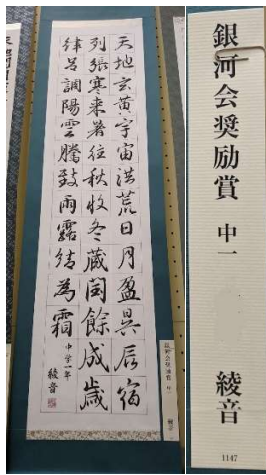 天地玄黄宇宙洪荒日月盈昃辰宿
列張寒来暑往秋收冬藏閏餘成歳
律呂調陽雲騰致雨露結為霜
中学一年 綾音
銀河会奨励賞 中一 綾音
銀河会奨励賞 中一 綾音
1147